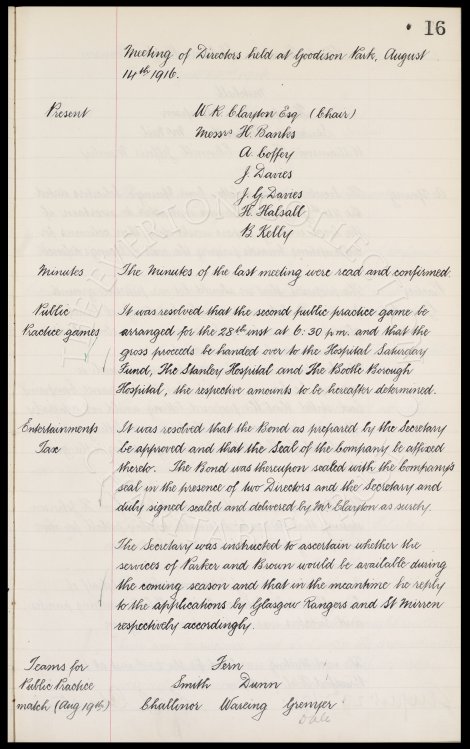 16
Meeting of Directors held at Goodison Park, August
14th 1916.
Present W. R. Clayton Esq (Chair)
Messrs H. Banks
A. Coffey
J. Davies
J. G. Davies
H. Halsall
B. Kelly
Minutes The Minutes of the last meeting were read and confirmed.
Public It was resolved that the second public practice game be
Practice games arranged for the 28th inst at 6:30 p.m. and that the
gross proceeds be handed over to the Hospital Saturday
Fund, The Stanley Hospital and The Bootle Borough
Hospital, the respective amounts to be hereafter determined.
Entertainments It was resolved that the Bond as prepared by the Secretary
Tax be approved and that the Seal of the Company be affixed
thereto. The Bond was thereupon sealed with the Company's
seal in the presence of two Directors and the Secretary and
duly signed sealed and delivered by Mr Clayton as surety.
The Secretary was instructed to ascertain whether the
services of Parker and Brown would be available during
the coming season and that in the meantime he reply
to the applications by Glasgow Rangers and St Mirren
respectively accordingly.
Teams for Fern
Public Practice Smith Dunn
match (Aug 19th) Challinor Wareing Grenyer
Dale